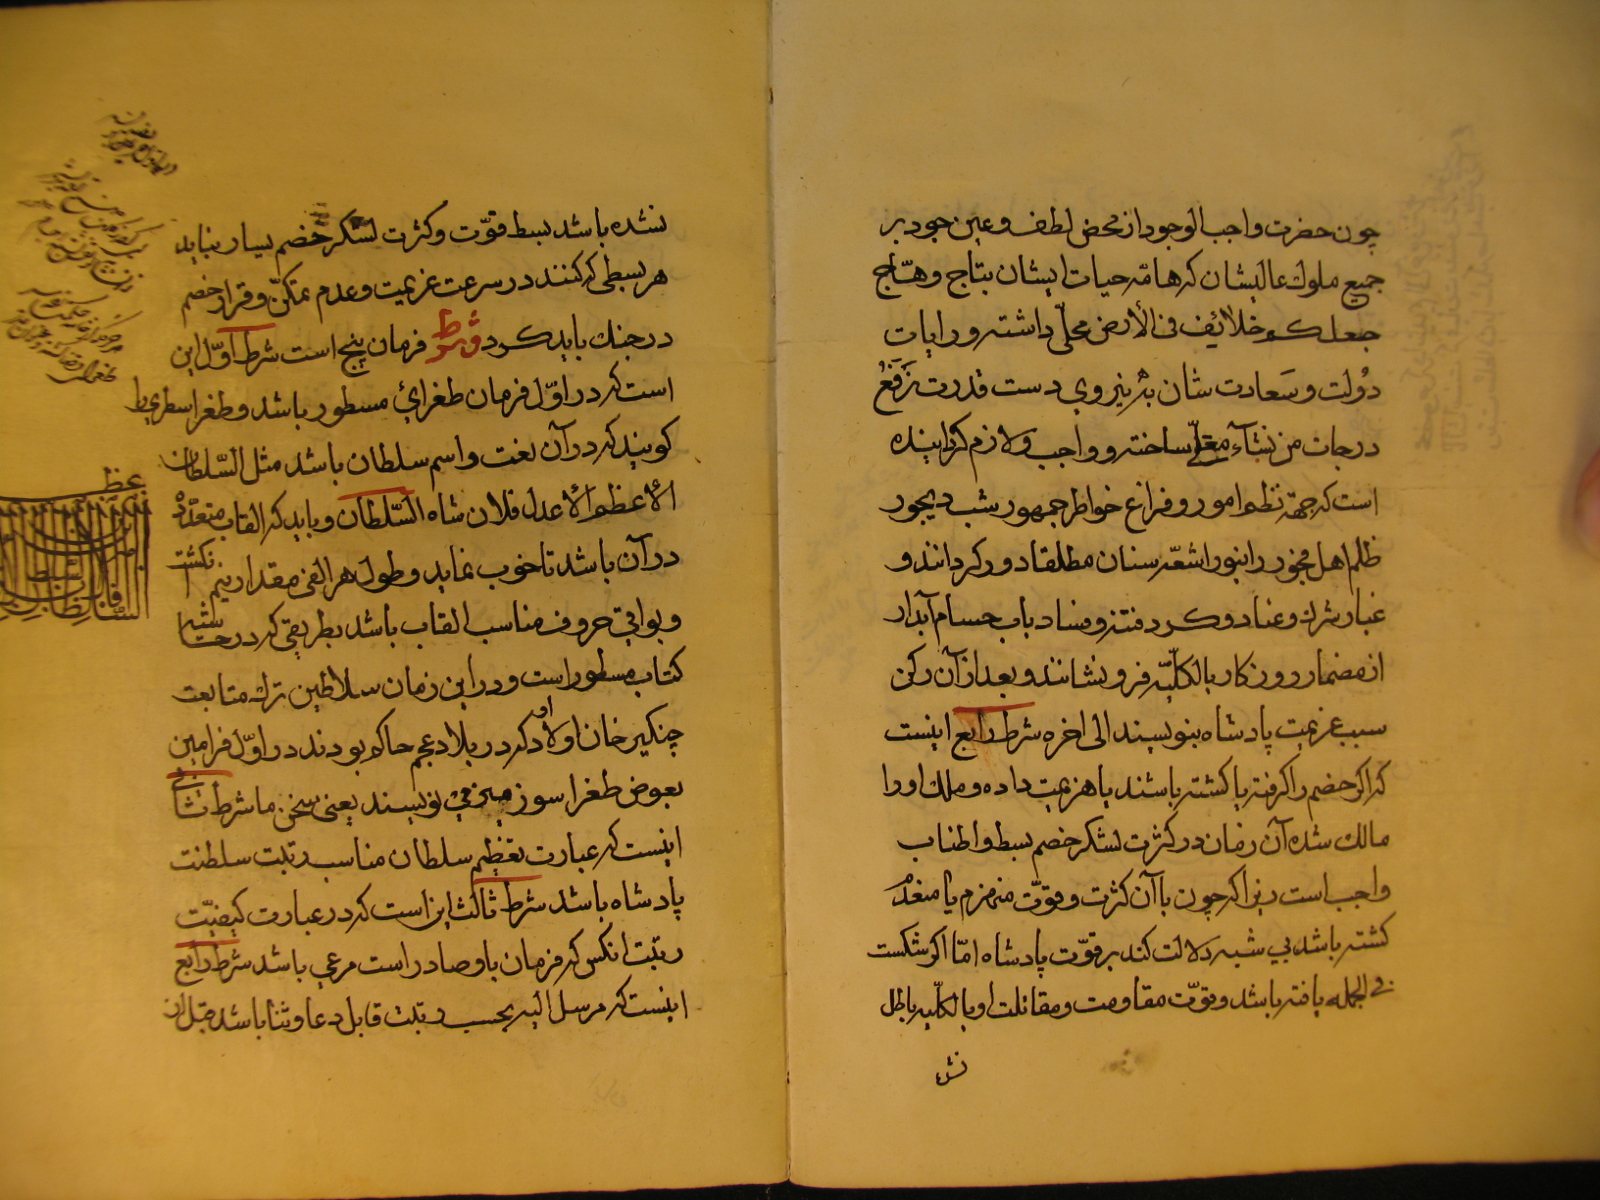 چون حضرت واجب الوجود از محض لطف و عین جود بر
جمیع ملوک عالیشان که هامهٔ حیات ایشان بتاج وهّاج
جعلکم خلائف فی الأرض محلّی داشته و رایات
دولت و سَعادت شان به نیروی دست قدرت نَرفَعُ
درجات من نشآء معلّی ساخته و واجب و لازم کردانیده
است که جهة نظم امور و فراغ خواطر جمهور شب دیجور
ظلم اهل فجور را بنور اشعّه سنان مطلقا دور کردانند و
غبار شر و عناد و کرد فتنه و فساد باب حسام آبدار
از مضمار روزکار بالکلّیه فرو نشانند و بعد از آن رکن
سبب عزیمت پادشاه بنویسند الی اخره شرط رابع اینست
که اکر خصم را کرفته یا کشته باشند یا هزیمت داده و ملک او را
مالک شده آن زمان در کثرت لشکر خصم بسط و اطناب
واجب است زیرا که چون با آن کثرت و قوّت منهزم یا منعدم
کشته باشد بی شبه دلالت کند بر قوّت پادشاه امّا اکر شکست
فی الجمله یافته باشد و قوّت مقاومت و مقاتلت او بالکلّیه باطل
نشده
نشده باشد بسط قوّت و کثرت لشکر خصم بسیار نباید
هر بسطی که کنند در سرعت عزیمت و عدم تمکّن و قرار خصم
در جنك باید کرد وشروط فرمان پنج است شرط اوّل این
است که در اوّل فرمان طغرائ مسطور باشد و طغرا سطری را
کویند که در آن نعت و اسم سلطان باشد مثل السّلطان
الأعظم الأعدل فلان شاه السّلطان و باید که القاب متعدّده
در آن باشد تا خوب نماید و طول هر الفی مقدار نیم انکشت
و بواقی حروف مناسب القاب باشد بطریقی که در حاشیه
کتاب مسطور است و در این زمان سلاطین ترك متابعت
چنکیز خان و اولاد او که در بلاد عجم حاکم بودند در اوّل فرامین
بعوض طغرا سوزمیز می نویسند یعنی سخن ما شرط ثانی
اینست که عبارت تعظیم سلطان مناسب رتبت سلطنت
پادشاه باشد شرط ثالث این است که در عبارت کیفیّت
رتبت انکس که فرمان باو صادر است مرعی باشد شرط رابع
اینست که مرسل الیه بحسب رتبت قابل دعا و ثنا باشد قبل از